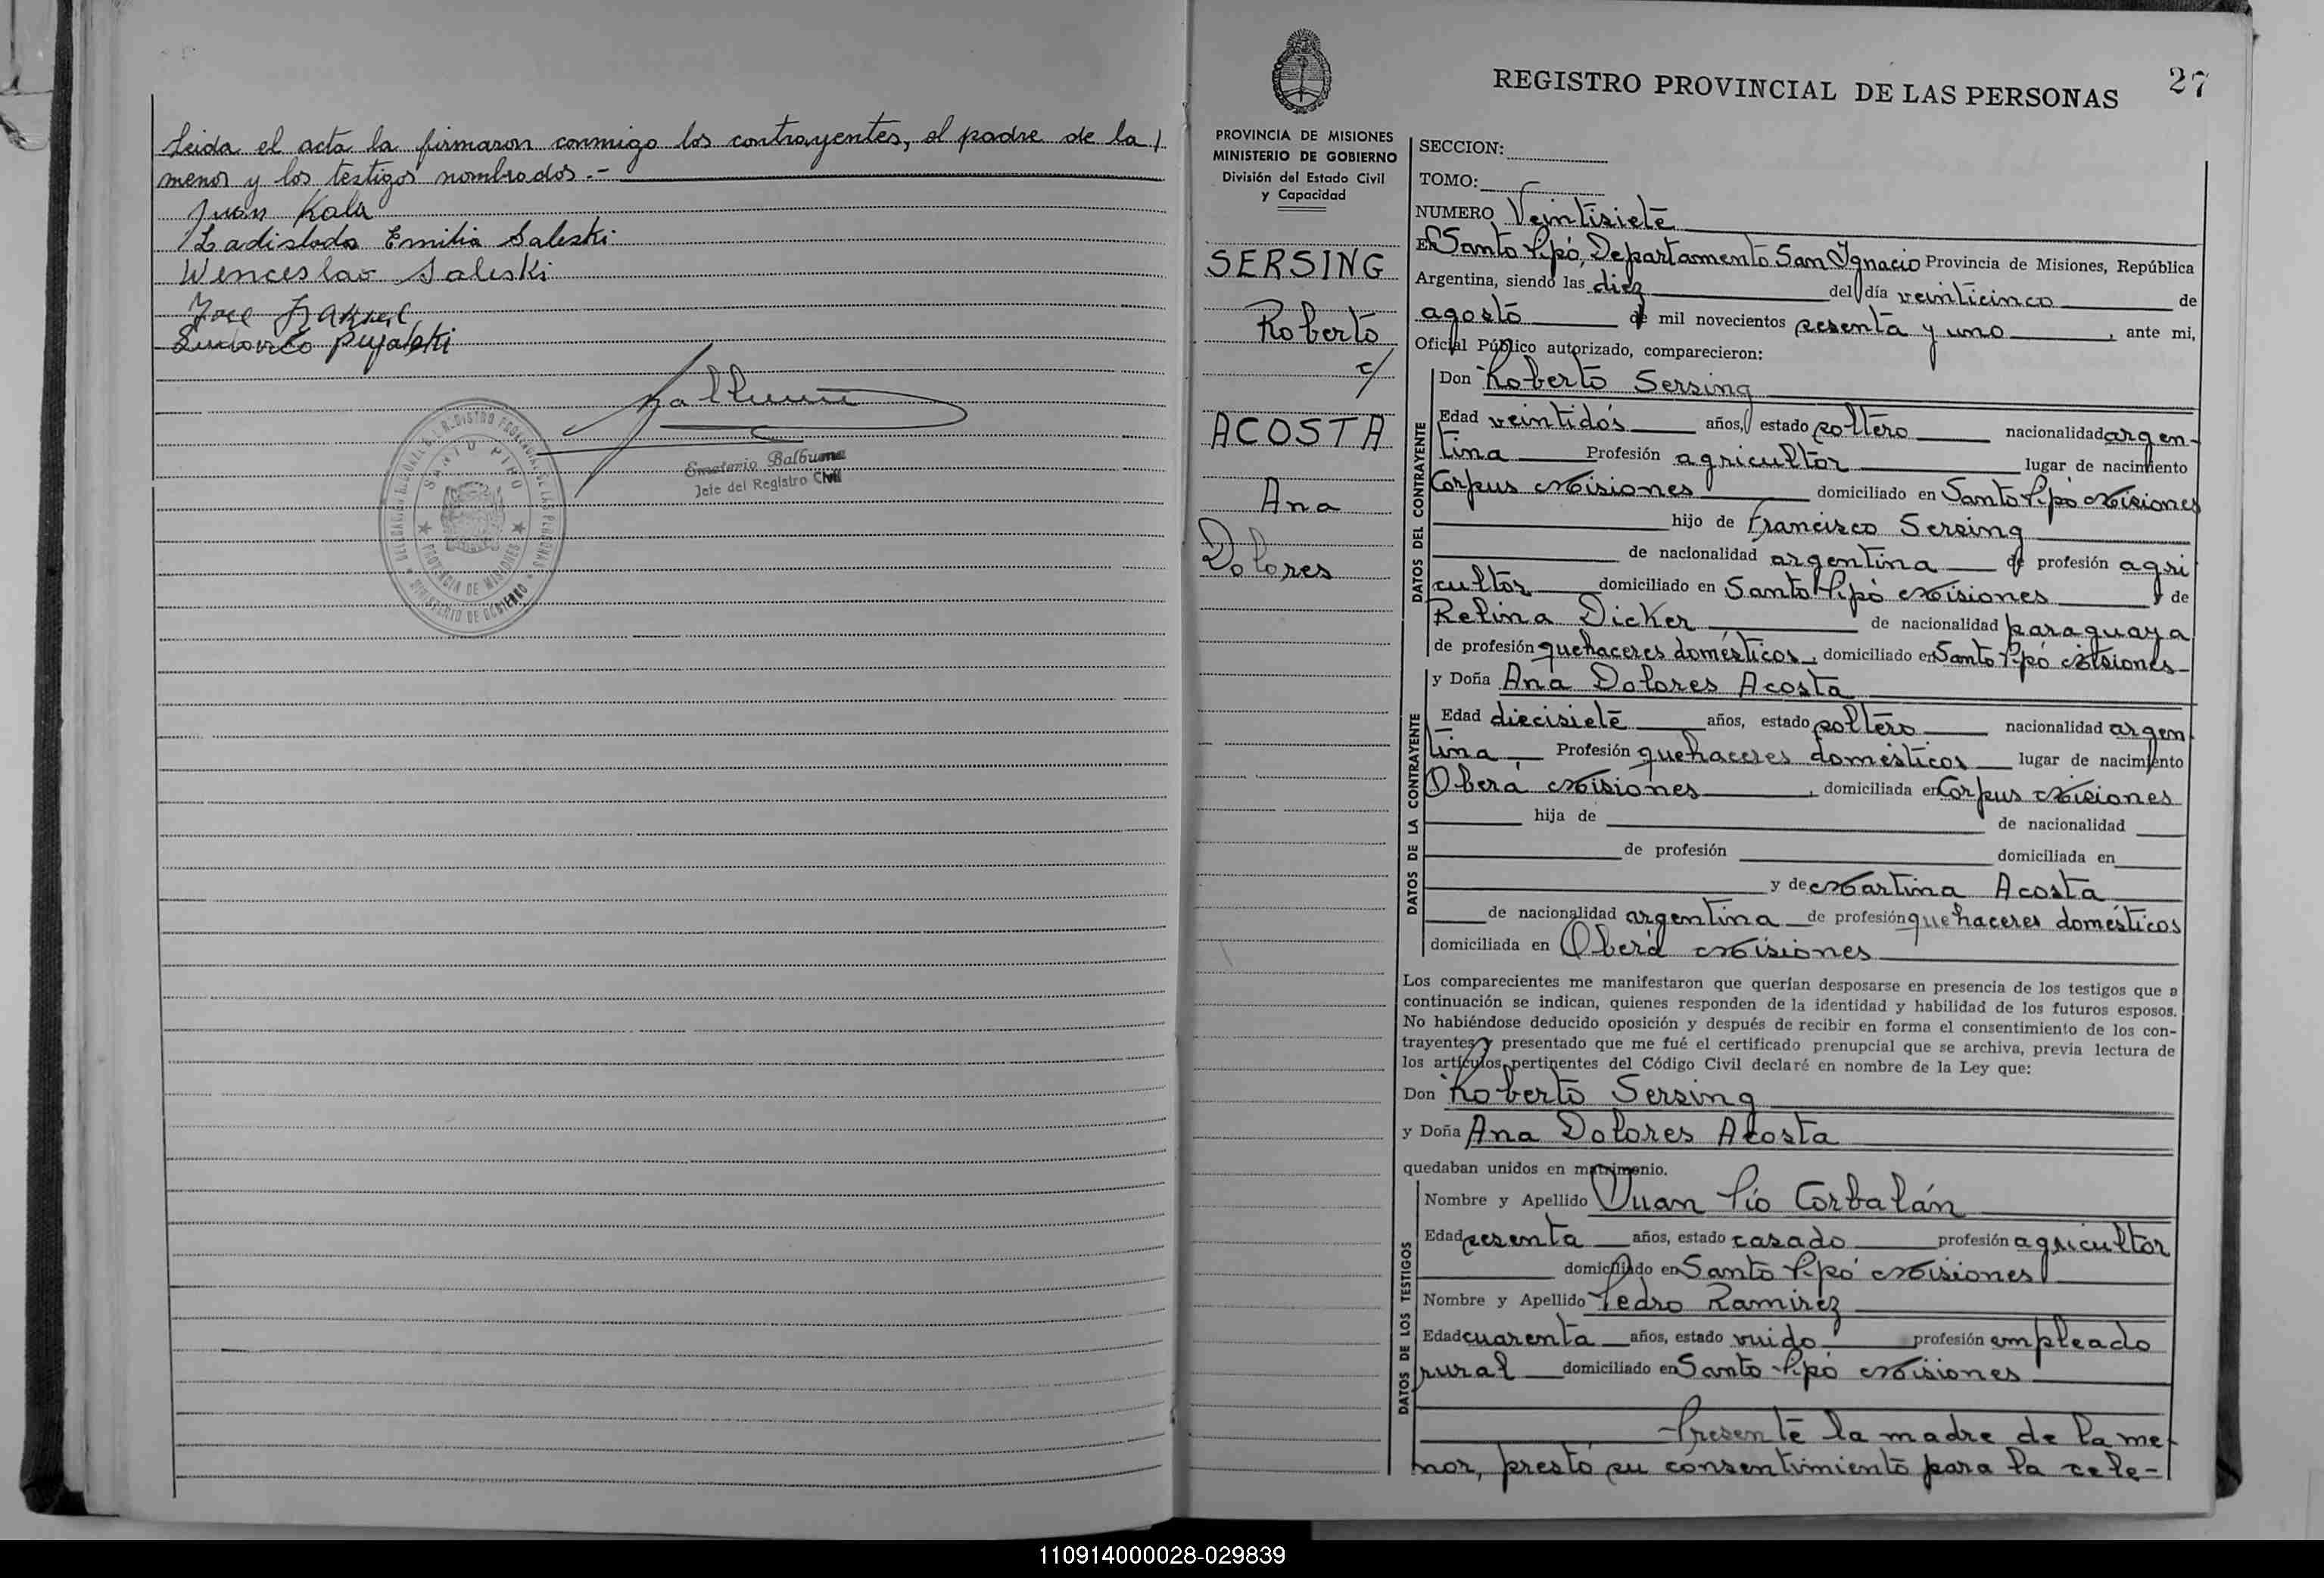 Leida el acta la firmaron conmigo los contrayentes, el padre de la
menor y los testigos nombrados.-
Juan Kala
Ladislada Emilia Saleski
Wenceslao Saleski
Emeterio Balbuena
Jefe del Registro Civil
SANTO PIPO
PROVINCIA DE MISIONES
MINISTERIO DE GOBIERNO
27
REGISTRO PROVINCIAL DE LAS PERSONAS
PROVINCIA DE MISIONES
MINISTERIO DE GOBIERNO
División del Estado Civil
y Capacidad
SERSING
Roberto
c/
ACOSTA
Ana
Dolores
SECCION:
TOMO:
NUMERO Veintisiete
En Santo Pipó, Departamento San Ignacio Provincia de Misiones, República
Argentina, siendo las diez del día veinticinco de
agosto de mil novecientos sesenta y uno, ante mi,
Oficial Público autorizado, comparecieron:
DATOS DEL CONTRAYENTE
Don Roberto Sersing
Edad veintidós años, estado soltero nacionalidad argen-
tina Profesión agricultor lugar de nacimiento
Corpus Misiones domiciliado en Santo Pipó Misiones
hijo de Francisco Sersing
de nacionalidad argentina de profesión agri
cultor domiciliado en Santo Pipó Misiones y de
Relina Dicker de nacionalidad paraguaya
de profesión quehaceres domésticos, domiciliado en Santo Pipó Misiones-
DATOS DE LA CONTRAYENTE
y Doña Ana Dolores Acosta
Edad diecisiete años, estado soltero nacionalidad argen
tina Profesión quehaceres domésticos lugar de nacimiento
Oberá Misiones, domiciliada en Corpus Misiones
hija de de nacionalidad
de profesión domiciliada en
y de Martina Acosta
de nacionalidad argentina de profesión quehaceres domésticos
domiciliada en Oberá Misiones
Los comparecientes me manifestaron que querían desposarse en presencia de los testigos que a
continuación se indican, quienes responden de la identidad y habilidad de los futuros esposos.
No habiéndose deducido oposición y después de recibir en forma el consentimiento de los con-
trayentes y presentado que me fué el certificado prenupcial que se archiva, previa lectura de
los artículos pertinentes del Código Civil declaré en nombre de la Ley que:
Don Roberto Sersing
y Doña Ana Dolores Acosta
quedaban unidos en matrimonio.
DATOS DE LOS TESTIGOS
Nombre y Apellido Juan Pío Corbalán
Edad sesenta años, estado casado profesión agricultor
domiciliado en Santo Pipó Misiones
Nombre y Apellido Pedro Ramirez
Edad cuarenta años, estado vuido profesión empleado
rural domiciliado en Santo Pipó Misiones
Presente la madre de la me-
nor, prestó su consentimiento para la cele-
110914000028-029839